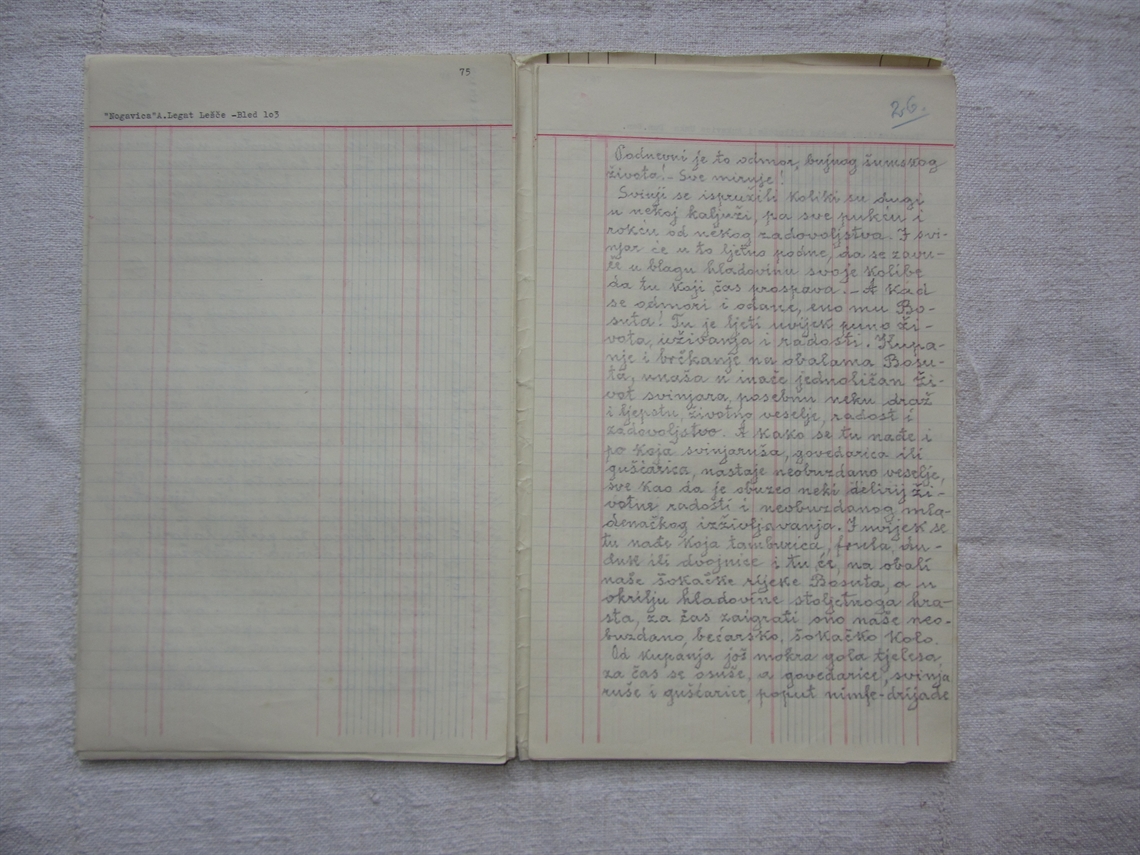 75
"Nogavica"A.Legat Lešče -Bled lo3
26.
Podnevni je to odmor, bujnog šumskog
života! - Sve miruje!
Svinji se ispružili koliki su dugi
u nekoj kaljuži, pa sve pukću i
rokću od nekog zadovoljstva. I svi-
njar će u to ljetno podne, da se zavu-
če u blagu hladovinu svoje kolibe
da tu koji čas prospava. - A kad
se odmori i odane, eno mu Bo-
suta! Tu je ljeti uvijek puno ži-
vota, uživanja i radosti. Kupa-
nje i brčkanje na obalama Bosu-
ta, unaša u inače jednoličan ži-
vot svinjara, posebnu neku draž
i ljepotu, životno veselje, radost i
zadovoljstvo. A kako se tu nađe i
po koja svinjaruša, govedarica ili
guščarica, nastaje neobuzdano veselje,
sve kao da je obuzeo neki delirij ži-
votne radosti i neobuzdanog mla-
denačkog izživljavanja. I uvijek se
tu nađe koja tamburica, frula, du-
duk ili dvojnice i tu će, na obali
naše šokačke rijeke Bosuta, a u
okrilju hladovine stoljetnoga hra-
sta, za čas zaigrati ono naše neo-
buzdano, bećarsko, šokačko kolo.
Od kupanja još mokra gola tjelesa,
za čas se osuše, a govedarice, svinja
ruše i guščarice, poput nimfe-drijade